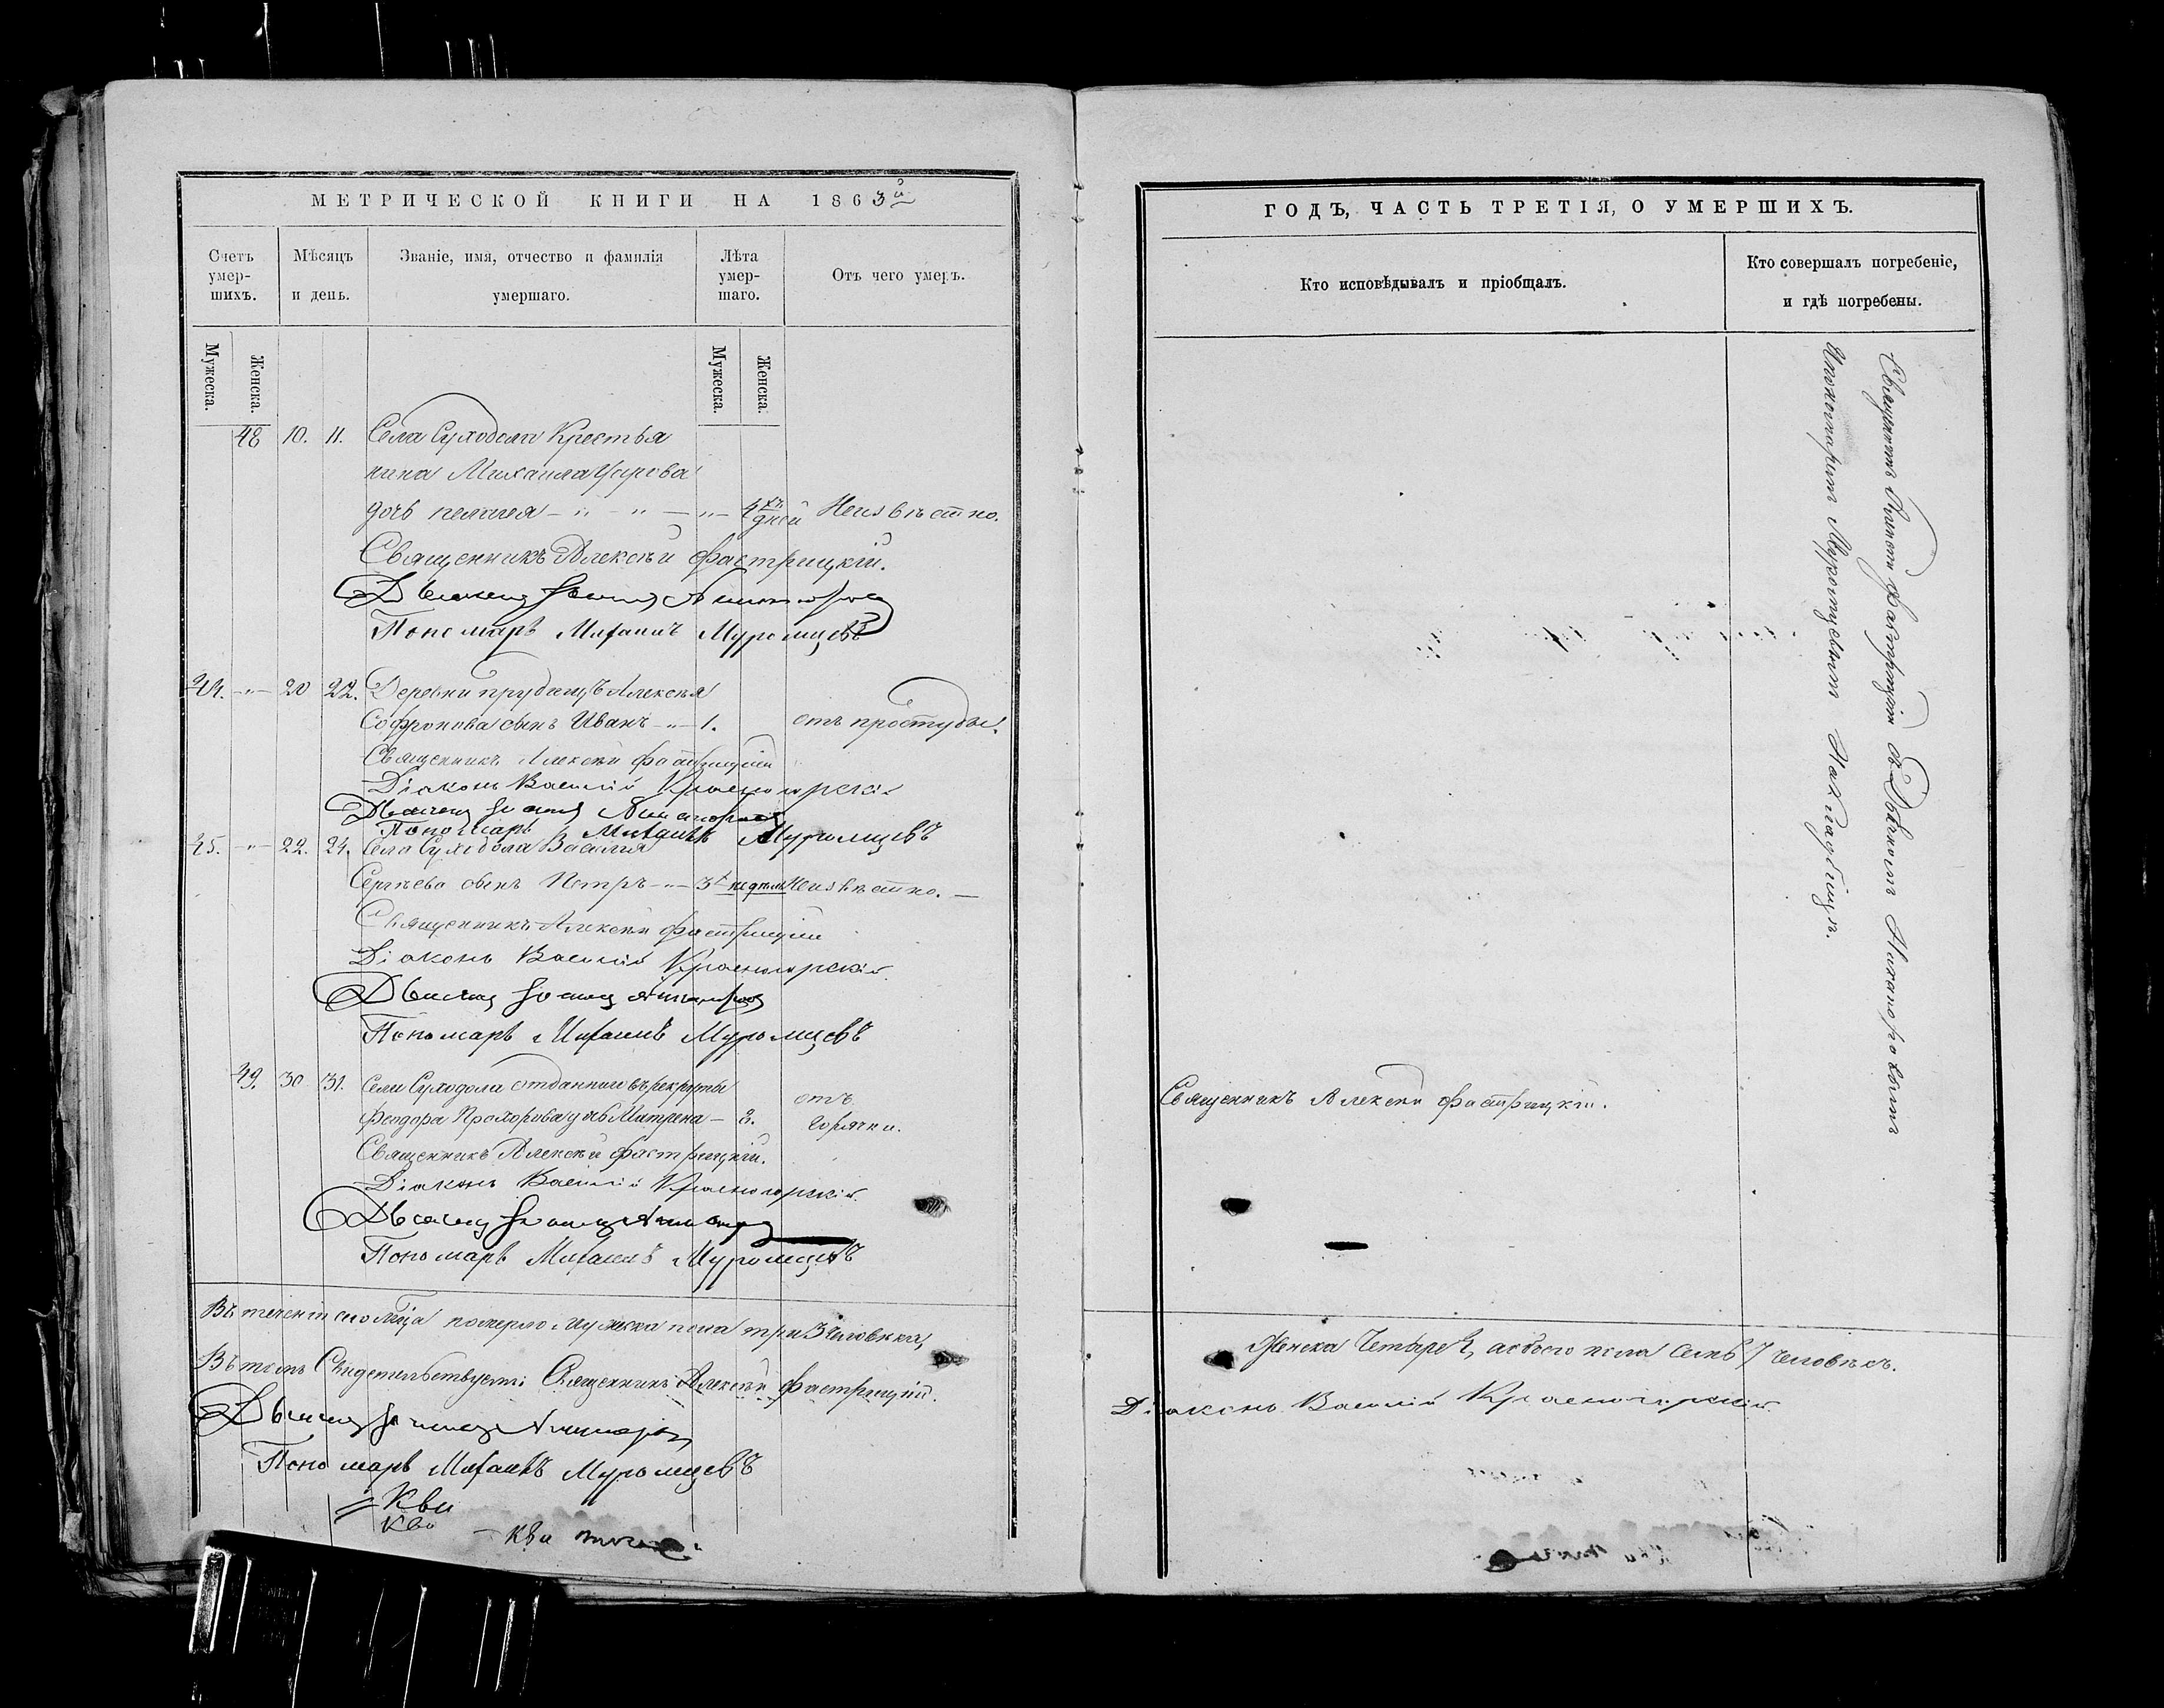 МЕТРИЧЕСКОЙ КНИГИ НА 1863й
Счетъ умер-шихъ.
Мѣсяцъ и день.
Званіе, имя, отчество и фамилія умершаго.
Лѣта умер-шаго.
Отъ чего умеръ.
Мужеска.
Женска.
Мужеска.
Женска.
48 10. 11. Села Суходола Крестья
нина Михаила
дочь - " - " - " - 4хъ дней Неизвѣстно.
Священникъ Алексѣй Фастрицкій.
Пономарь Михаилъ Муромцевъ
44. - " - 20 22. Деревни Прудищъ Алексѣя
Софронова сынъ Иванъ - " - 1. отъ простуды.
Священникъ Алексѣй Фастрицкій
Діаконъ Василій Красногорскій
Пономарь Михаилъ Муромцевъ
45. - " - 22. 24. Села Суходола Василія
Сергѣева сынъ Петръ - " - 3х недѣль Неизвѣстно. -
Священникъ Алексѣй Фастрицкій
Діаконъ Василій Красногорскій.
Пономарь Михаилъ Муромцевъ
49. 30 31. Села Суходола отданнаго въ рекруты
отъ
Феодора Прохорова дочь Матрена - 2. горячки.
Священникъ Алексѣй Фастрицкій.
Діаконъ Василій Красногорскій.
Пономарь Михаилъ Муромцевъ
Въ теченіи сего мѣсяца померло мужска пола три 3 человѣка,
Въ томъ Свидетельствуемъ: Священникъ Алексѣй Фастрицкій.
Пономарь Михаилъ Муромцевъ
Кви
Кво
- Кви
ГОДЪ, ЧАСТЬ ТРЕТІЯ, О УМЕРШИХЪ.
Кто исповѣдывалъ и пріобщалъ.
Кто совершалъ погребеніе, и гдѣ погребены.
Священникъ Алексѣй Фастрицкій съ Дьячкомъ Никаноровымъ
Ипономаремъ Муромцевымъ На Кладбищѣ.
Священникъ Алексѣй Фастрицкій.
Женска Четыре 4, а обоего пола семь 7 человѣкъ.
Діаконъ Василій Красногорскій.